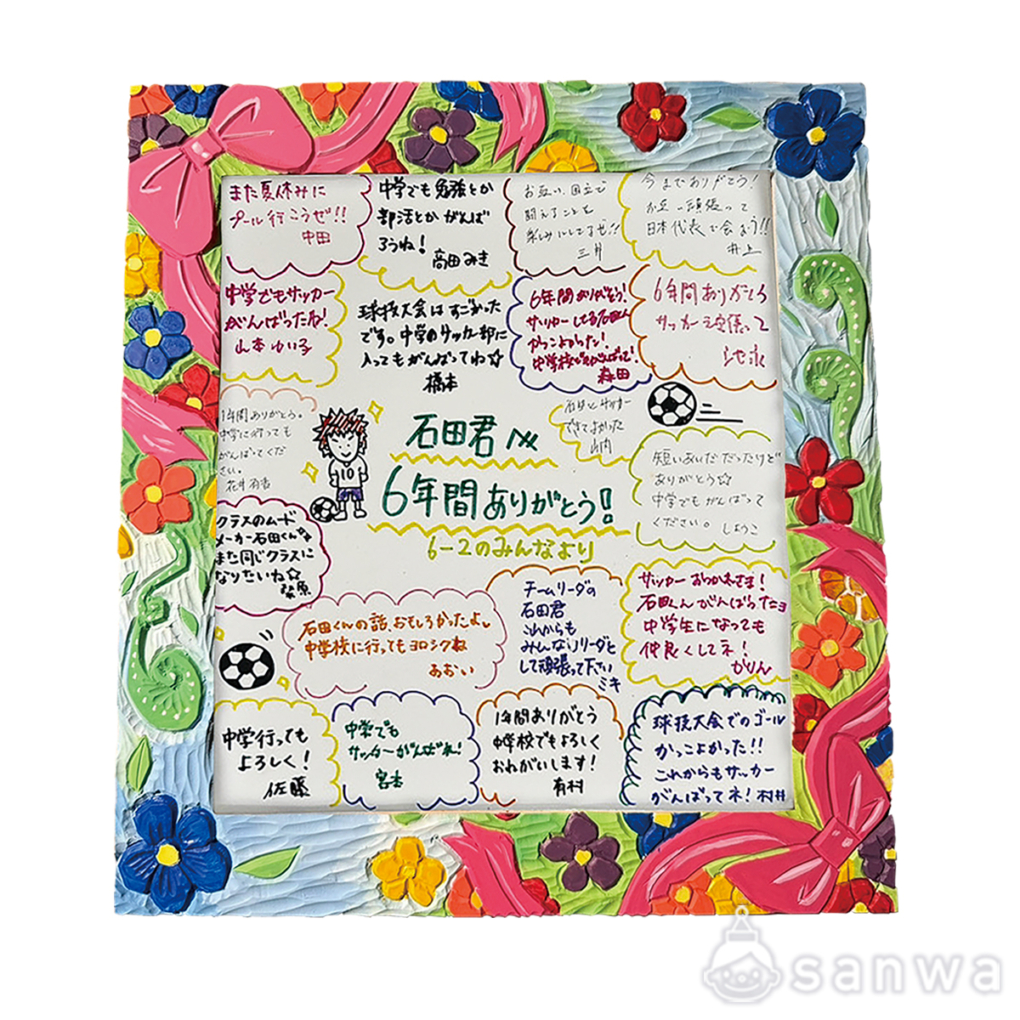 また夏休みに
プール行こうぜ!!
中田
中学でも勉強とか
部活とかがんば
ろうね!
高田みき
お互い国立で
闘えることを
楽しみにしてるぜ!!
今までありがとう!
お互い頑張って
日本代表で会おう!!
井上
中学でもサッカー
がんばったね!
山本ゆい子
球技大会はすごかった
です。中学のサッカー部に
入ってもがんばってね☆
橋本
6年間ありがとう!
サッカーしてる石田くん
かっこよかった!
中学校でもがんばって!
森田
6年間ありがとう
サッカー頑張って
1年間ありがとう。
中学に行っても
がんばってくだ
さい。
10
石田君へ
6年間ありがとう!
6-2のみんなより
石田とサッカー
できてよかった
山内
短いあいだだったけど
ありがとう☆
中学でもがんばって
ください。しょうこ
クラスのムード
メーカー石田くん
また同じクラスに
なりたいね☆
石田くんの話、おもしろかったよ。
中学校に行ってもヨロシクね
あおい
チームリーダの
石田君
これからも
みんなのリーダと
して頑張って下さい
ミキ
サッカーおつかれさま!
石田くんがんばったョ
中学生になっても
仲良くしてネ!
かりん
中学行っても
よろしく!
佐藤
中学でも
サッカーがんばれ!
1年間ありがとう
中学校でもよろしく
おねがいします!
有村
球技大会でのゴール
かっこよかった!!
これからもサッカー
がんばってネ!村井
sanwa